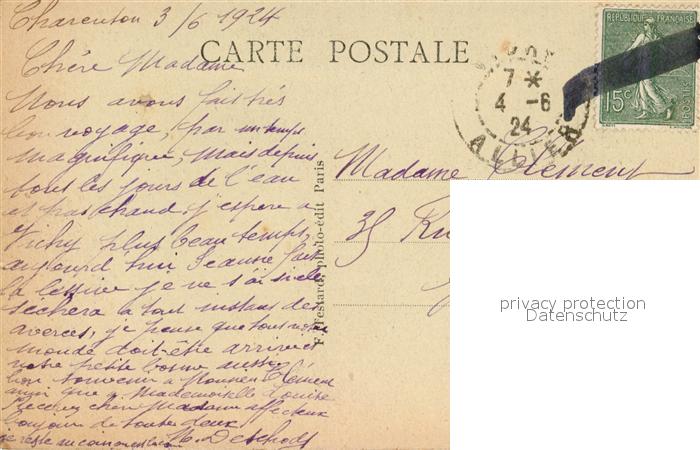 Charenton 3/6 1924
CARTE POSTALE
Chère Madame
Nous avons fait très
bon voyage, par un temps
magnifique, mais depuis
tous les jours de l'eau
et pas chaud, j'espère a
Vichy plus beau temps,
aujourd hui Jeanne fait
la lessive je ne sai si elle
sèchera a tout instant des
averses, je pense que tout votre
monde doit-être arrivé et
votre petite bonne aussi
bon souvenir a Monsieur Clément
ainsi que Mademoiselle Louise
Recevez chère Madame affectueux
bonjour de toutes deux
je reste au
RÉPUBLIQUE FRANÇAISE
15c
POSTES
7 *
4 -6
24
ALLIER
Madame Clément
35 Ru
F. Festard, photo-édit Paris
privacy protection
Datenschutz